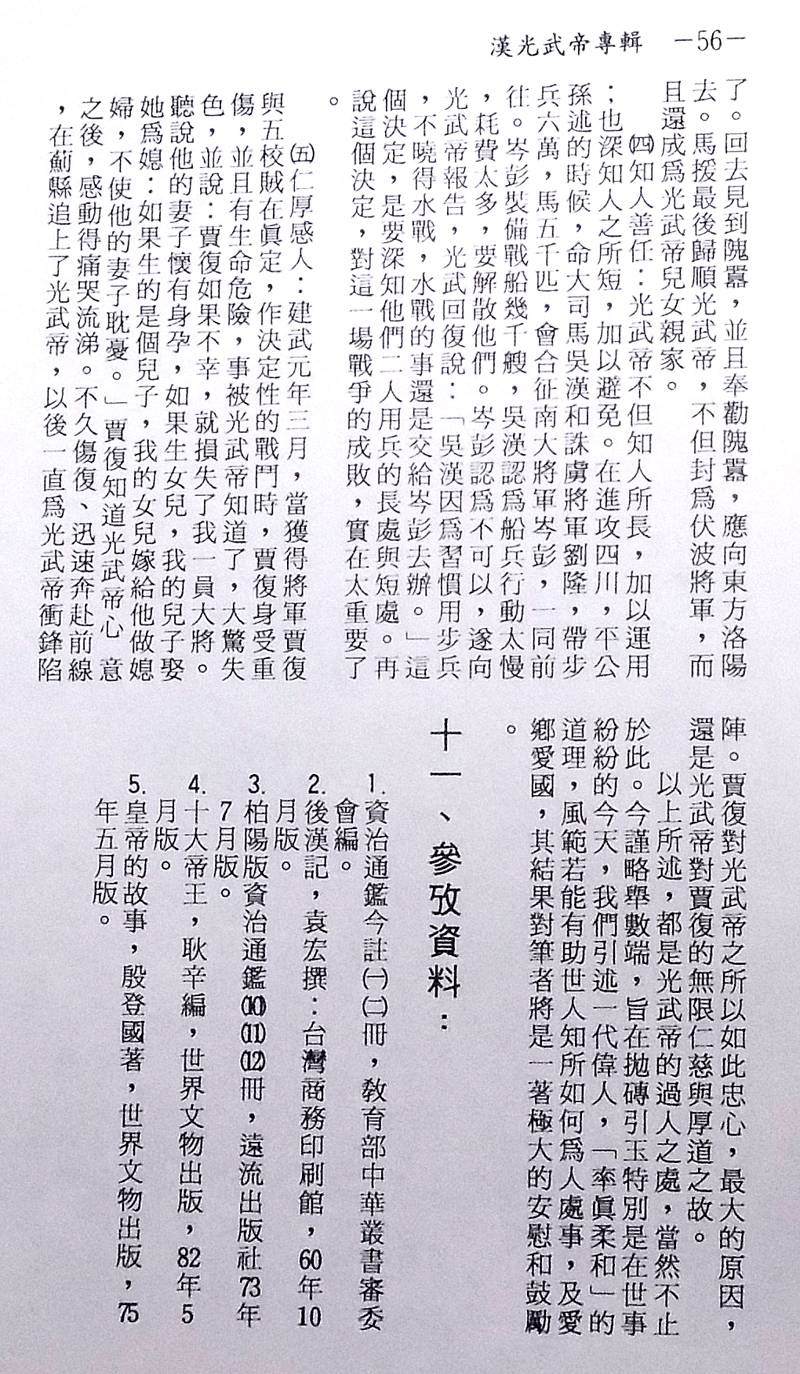 漢光武帝專輯　—56—
了。回去見到隗囂，並且奉勸隗囂，應向東方洛陽
去。馬援最後歸順光武帝，不但封爲伏波將軍，而
且還成爲光武帝兒女親家。
㈣知人善任：光武帝不但知人所長，加以運用
；也深知人之所短，加以避免。在進攻四川，平公
孫述的時候，命大司馬吳漢和誅虜將軍劉隆，帶步
兵六萬，馬五千匹，會合征南大將軍岑彭，一同前
往。岑彭裝備戰船幾千艘，吳漢認爲船兵行動太慢
，耗費太多，要解散他們。岑彭認爲不可以，遂向
光武帝報告，光武回復說：「吳漢因爲習慣用步兵
，不曉得水戰，水戰的事還是交給岑彭去辦。」這
個決定，是要深知他們二人用兵的長處與短處。再
說這個決定，對這一場戰爭的成敗，實在太重要了
。
㈤仁厚感人：建武元年三月，當獲得將軍賈復
與五校賊在眞定，作決定性的戰鬥時，賈復身受重
傷，並且有生命危險，事被光武帝知道了，大驚失
色，並說：賈復如果不幸，就損失了我一員大將。
聽說他的妻子懷有身孕，如果生女兒，我的兒子娶
她爲媳：如果生的是個兒子，我的女兒嫁給他做媳
婦，不使他的妻子耽憂。」賈復知道光武帝心　意
之後，感動得痛哭流涕。不久傷復、迅速奔赴前線
，在薊縣追上了光武帝，以後一直爲光武帝衝鋒陷
陣。賈復對光武帝之所以如此忠心，最大的原因，
還是光武帝對賈復的無限仁慈與厚道之故。
以上所述，都是光武帝的過人之處，當然不止
於此。今謹略舉數端，旨在拋磚引玉特別是在世事
紛紛的今天，我們引述一代偉人，「率眞柔和」的
道理，風範若能有助世人知所如何爲人處事，及愛
鄉愛國，其結果對筆者將是一著極大的安慰和鼓勵
。
十一、參攷資料：
1.資治通鑑今註㈠㈡冊，敎育部中華叢書審委
會編。
2.後漢記，袁宏撰：台灣商務印刷館，60年10
月版。
3.柏陽版資治通鑑⑽⑾⑿冊，遠流出版社73年
7月版。
4.十大帝王，耿辛編，世界文物出版，82年5
月版。
5.皇帝的故事，殷登國著，世界文物出版，75
年五月版。